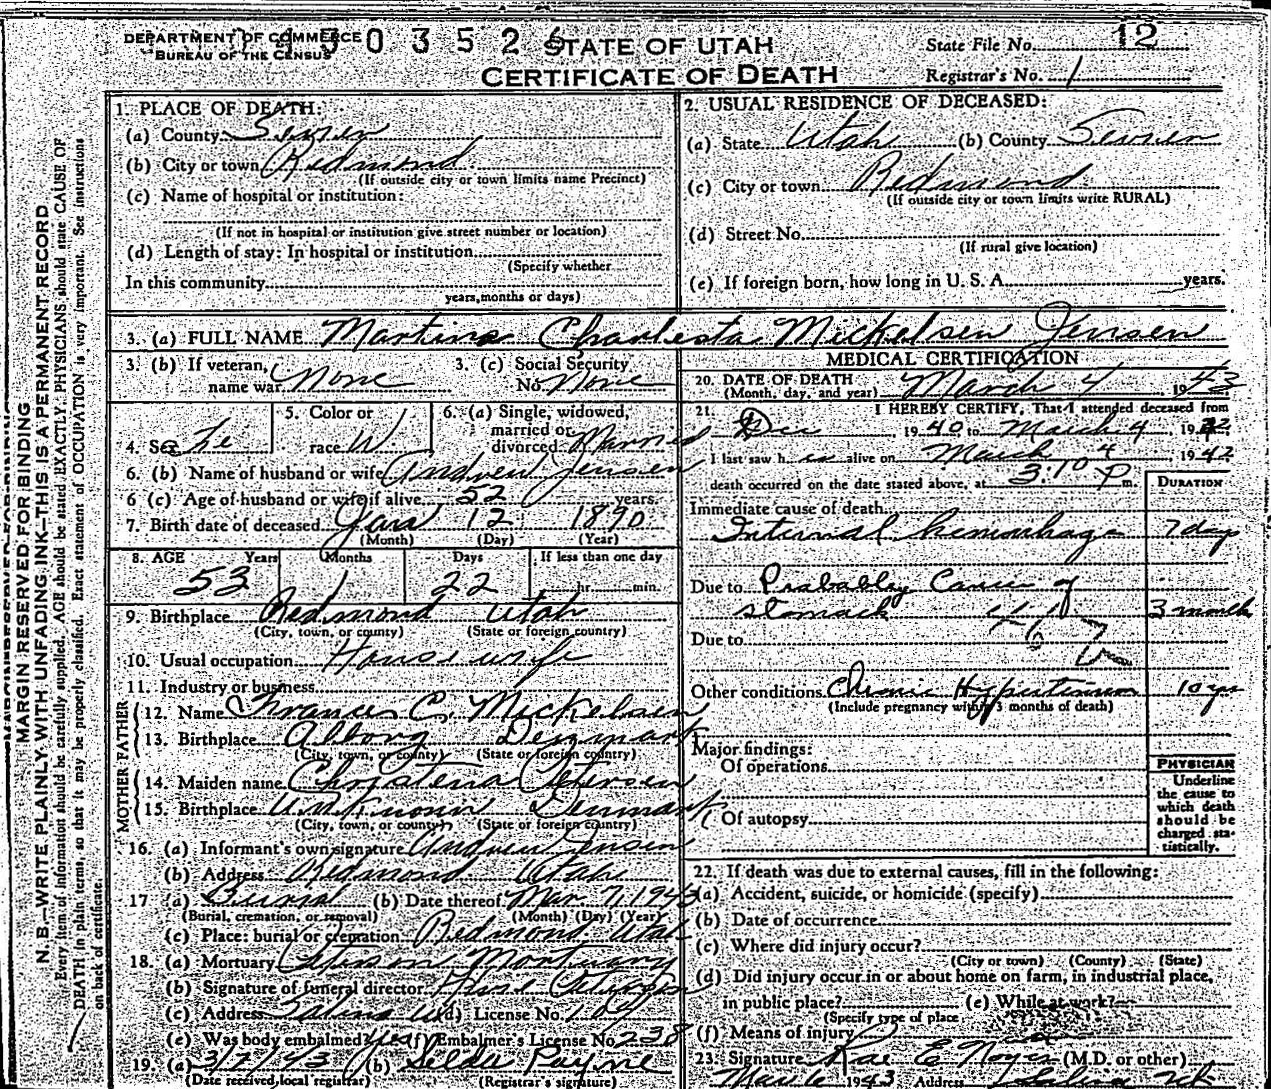 DEPARTMENT OF COMMERCE
BUREAU OF THE CENSUS
STATE OF UTAH
CERTIFICATE OF DEATH
State File No. 12
Registrar's No. 1
MARGIN RESERVED FOR BINDING
N. B.—WRITE PLAINLY WITH UNFADING INK—THIS IS A PERMANENT RECORD
Every item of information should be carefully supplied. AGE should be stated EXACTLY. PHYSICIANS should state CAUSE OF
DEATH in plain terms, so that it may be properly classified. Exact statement of OCCUPATION is very important. See instructions
on back of certificate.
1. PLACE OF DEATH:
(a) County Sevier
(b) City or town Redmond
(If outside city or town limits name Precinct)
(c) Name of hospital or institution:
(If not in hospital or institution give street number or location)
(d) Length of stay: In hospital or institution
(Specify whether
In this community
years, months or days)
2. USUAL RESIDENCE OF DECEASED:
(a) State Utah (b) County Sevier
(c) City or town Redmond
(If outside city or town limits write RURAL)
(d) Street No.
(If rural give location)
(e) If foreign born, how long in U. S. A. years.
3. (a) FULL NAME Martina Charlesta Mickelsen Jensen
3. (b) If veteran, name war None
3. (c) Social Security No. None
4. Sex Fe
5. Color or race W.
6. (a) Single, widowed, married or divorced Married
6. (b) Name of husband or wife Andrew Jensen
6 (c) Age of husband or wife if alive 52 years.
7. Birth date of deceased Jan 12 1890
(Month) (Day) (Year)
8. AGE Years Months Days If less than one day
53 1 22 hr. min.
9. Birthplace Redmond Utah
(City, town, or county) (State or foreign country)
10. Usual occupation Housewife
11. Industry or business
FATHER
12. Name Francis C. Mickelsen
13. Birthplace Alborg Denmark
(City, town, or county) (State or foreign country)
MOTHER
14. Maiden name
15. Birthplace Unknown Denmark
(City, town, or county) (State or foreign country)
16. (a) Informant's own signature Andrew Jensen
(b) Address Redmond Utah
17 (a) Burial (b) Date thereof Mar. 7, 1943
(Burial, cremation, or removal) (Month) (Day) (Year)
(c) Place: burial or cremation Redmond Utah
18. (a) Mortuary Mortuary
(b) Signature of funeral director
(c) Address Salina (d) License No.
(e) Was body embalmed Yes (f) Embalmer's License No. 238
19. (a) 3/7/43 (b) Selda Payne
(Date received local registrar) (Registrar's signature)
MEDICAL CERTIFICATION
20. DATE OF DEATH March 4 1943
(Month, day, and year)
21. I HEREBY CERTIFY, That I attended deceased from
Dec 1940 to March 4, 19
I last saw h er alive on March 4, 1942
death occurred on the date stated above, at 3:10 P m.
DURATION
Immediate cause of death
Internal hemorrhage 7 days
Due to Probably Cancer of
stomach 3 months
Due to
Other conditions Chronic Hypertension 10 yrs
(Include pregnancy within 3 months of death)
Major findings:
Of operations
Of autopsy
PHYSICIAN
Underline
the cause to
which death
should be
charged sta-
tistically.
22. If death was due to external causes, fill in the following:
(a) Accident, suicide, or homicide (specify)
(b) Date of occurrence
(c) Where did injury occur?
(City or town) (County) (State)
(d) Did injury occur in or about home on farm, in industrial place,
in public place? (e) While at work?
(Specify type of place
(f) Means of injury
23. Signature Rae E Noyes (M.D. or other)
Mar 6 1943 Address Salina